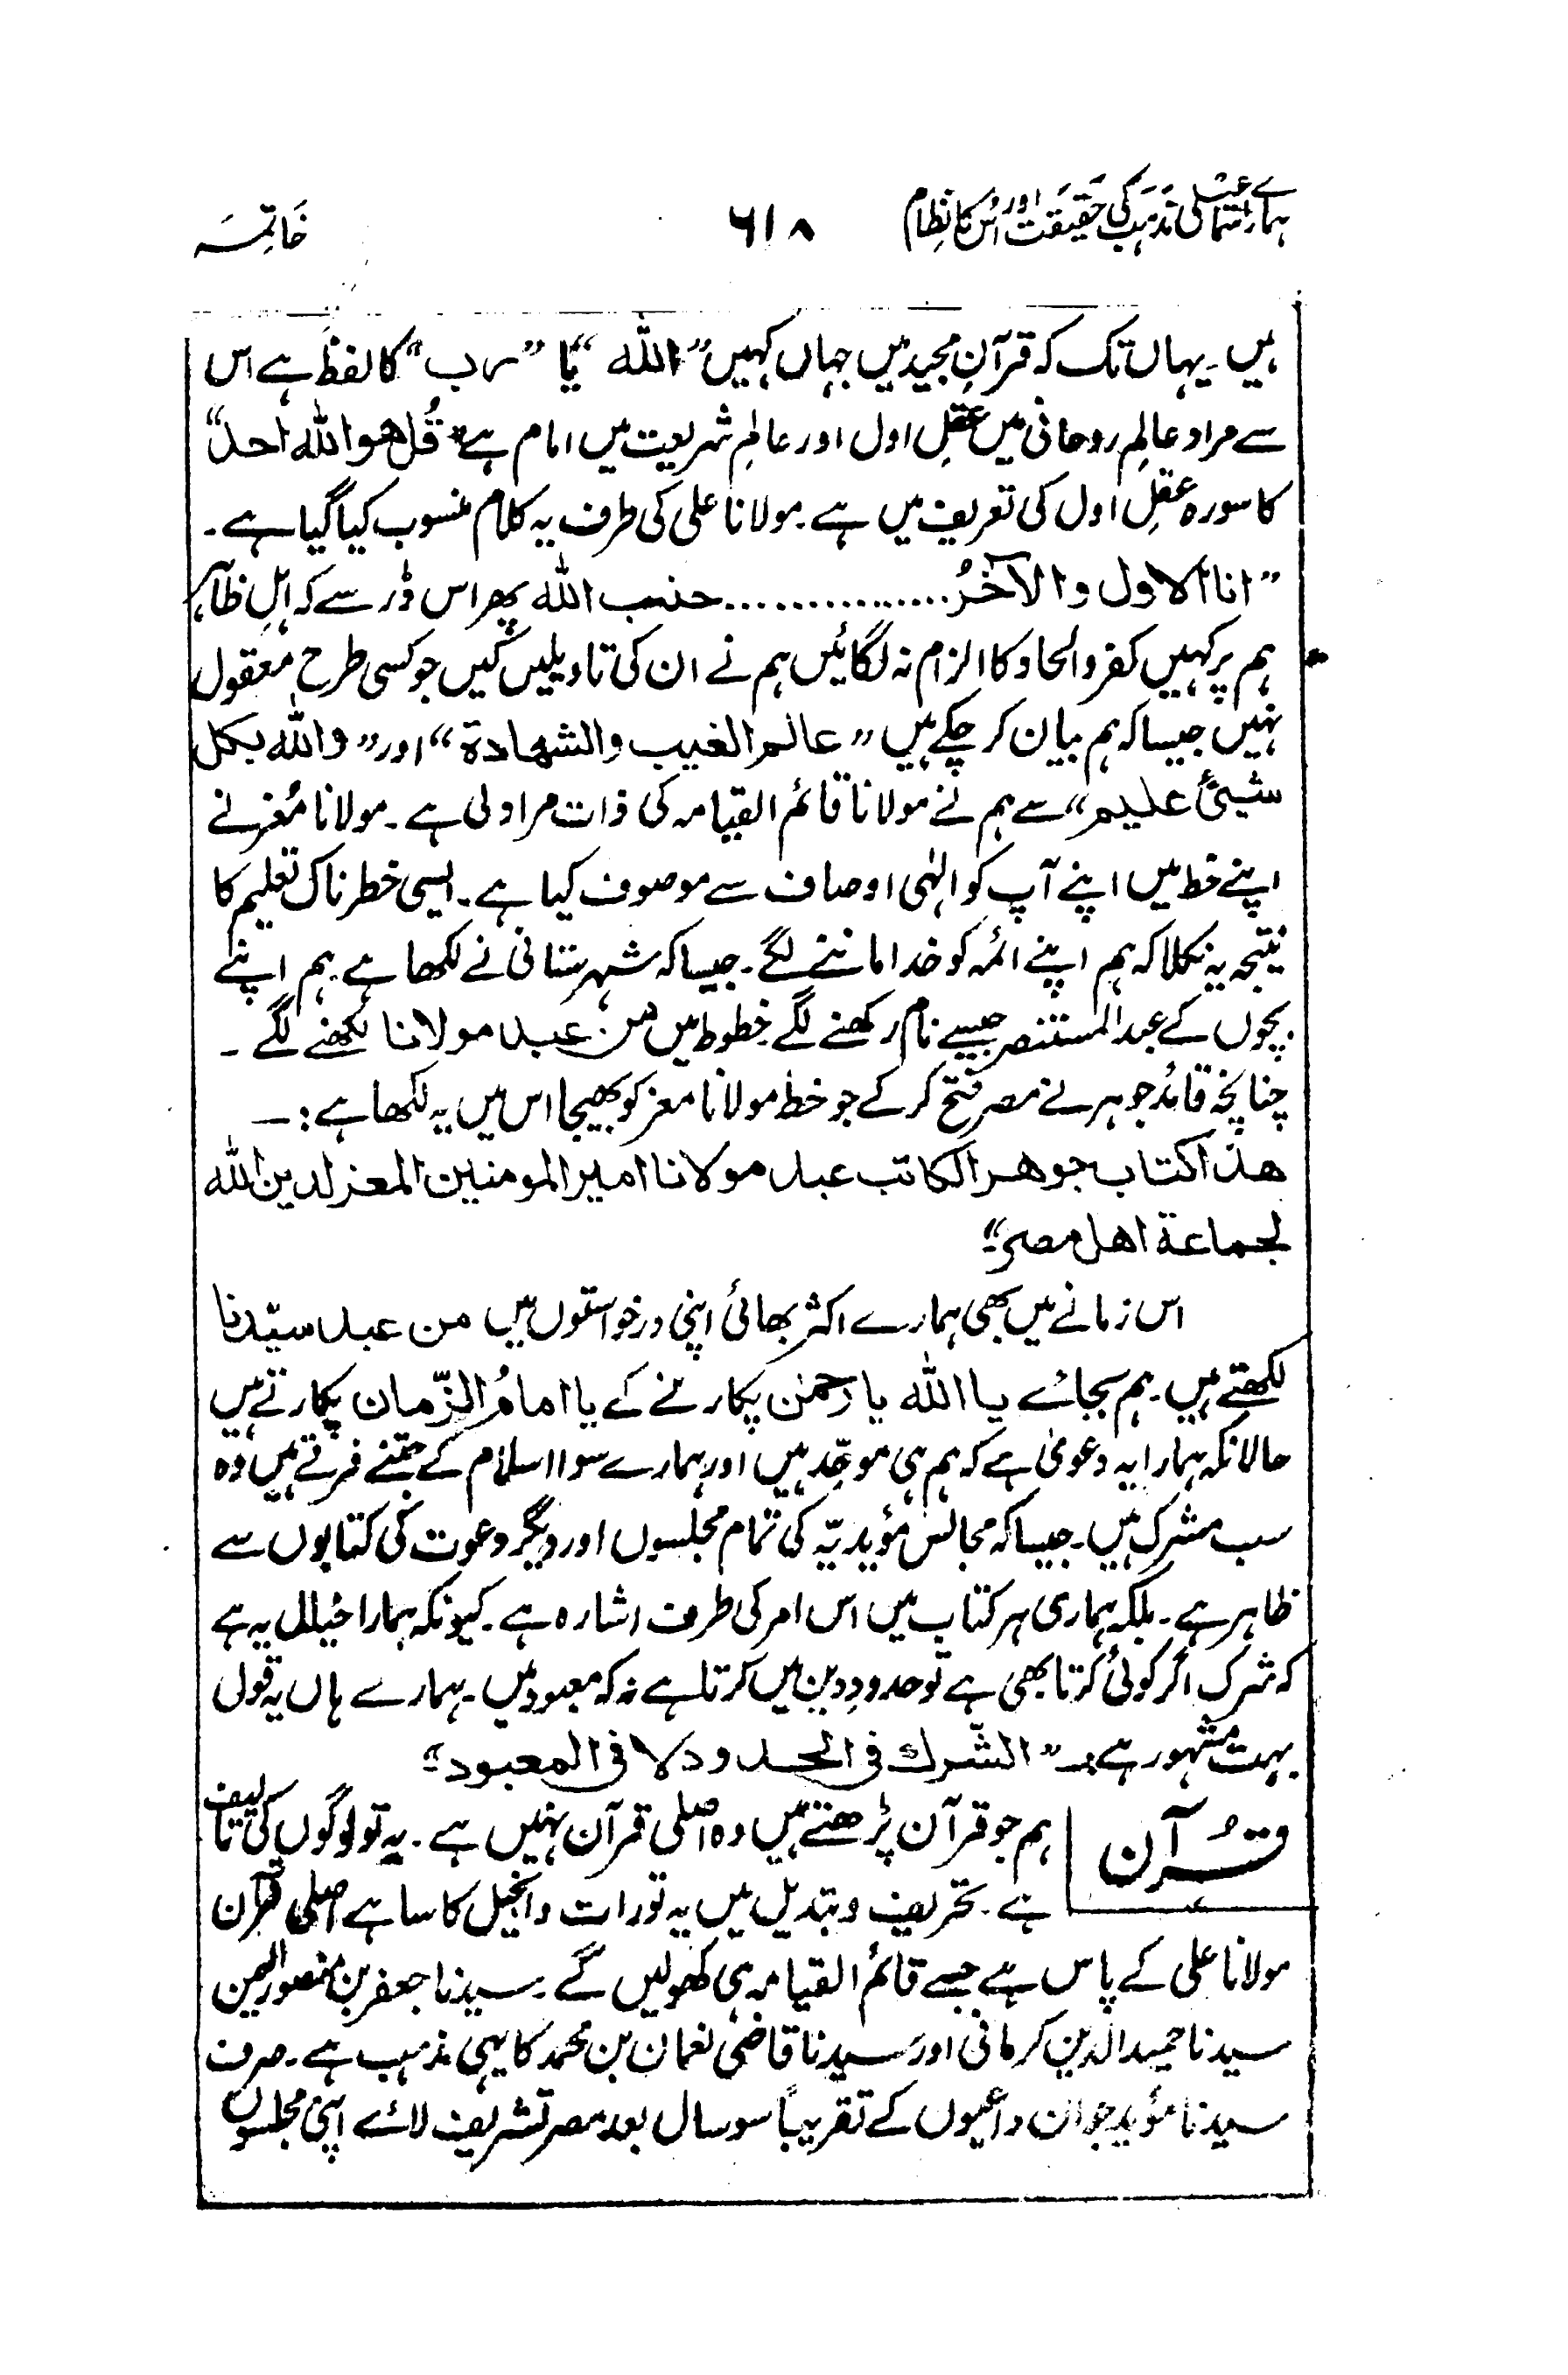 ہمارے اسمٰعیلی مذہب کی حقیقت اور اس کا نظام ۶۱۸ خاتمہ
ہیں۔ یہاں تک کہ قرآن مجید میں جہاں کہیں ”اللہ“ یا ”رب“ کا لفظ ہے اس
سے مراد عالمِ روحانی میں عقلِ اول اور عالمِ شریعت میں امام ہے ”قُل هو الله احد“
کا سورہ عقلِ اول کی تعریف میں ہے۔ مولانا علی کی طرف یہ کلام منسوب کیا گیا ہے۔
”انا الاول والآخرُ............... جنب الله پھر اس ڈر سے کہ اہلِ ظاہر
ہم پر کہیں کفر و الحاد کا الزام نہ لگائیں ہم نے ان کی تاویلیں کیں جو کسی طرح معقول
نہیں جیسا کہ ہم بیان کر چکے ہیں ”عالم الغیب والشهادة“ اور ”والله بکل
شیئ علیم“ سے ہم نے مولانا قائم القیامہ کی ذات مراد لی ہے۔ مولانا مُعز نے
اپنے خط میں اپنے آپ کو الہٰی اوصاف سے موصوف کیا ہے۔ ایسی خطرناک تعلیم کا
نتیجہ یہ نکلا کہ ہم اپنے ائمہ کو خدا ماننے لگے۔ جیسا کہ شہرستانی نے لکھا ہے۔ ہم اپنے
بچوں کے عبد المستنصر جیسے نام رکھنے لگے خطوط میں من عبد مولانا لکھنے لگے۔
چنانچہ قائد جوہر نے مصر فتح کر کے جو خط مولانا معز کو بھیجا اس میں یہ لکھا ہے:۔
هذا کتاب جوهر الکاتب عبد مولانا امیر المومنین المعز لدین الله
لجماعة اهل مصر“
اس زمانے میں بھی ہمارے اکثر بھائی اپنی درخواستوں میں من عبد سیّدنا
لکھتے ہیں۔ ہم بجائے یا اللہ یا رحمٰن پکارنے کے یا امامُ الزّمان پکارتے ہیں
حالانکہ ہمارا یہ دعویٰ ہے کہ ہم ہی موحّد ہیں اور ہمارے سوا اسلام کے جتنے فرقے ہیں وہ
سب مشرک ہیں۔ جیسا کہ مجالس مؤیدیّہ کی تمام مجلسوں اور دیگر دعوت کی کتابوں سے
ظاہر ہے۔ بلکہ ہماری ہر کتاب میں اس امر کی طرف اشارہ ہے۔ کیونکہ ہمارا خیال یہ ہے
کہ شرک اگر کوئی کرتا بھی ہے تو حدودِ دین میں کرتا ہے نہ کہ معبود میں۔ ہمارے ہاں یہ قول
بہت مشہور ہے:۔ ”الشّرك فی الحدود لا فی المعبود“
قُرآن ہم جو قرآن پڑھتے ہیں وہ اصلی قرآن نہیں ہے۔ یہ تو لوگوں کی تالیف
ہے۔ تحریف و تبدیل میں یہ تورات و انجیل کا سا ہے اصلی قرآن
مولانا علی کے پاس ہے جسے قائم القیامہ ہی کھولیں گے۔ سیدنا جعفر بن منصور الیمن
سیدنا حمید الدین کرمانی اور سیدنا قاضی نعمان بن محمد کا یہی مذہب ہے۔ صرف
سیدنا مؤید جو ان داعیوں کے تقریباً سو سال بعد مصر تشریف لائے اپنی مجلسوں